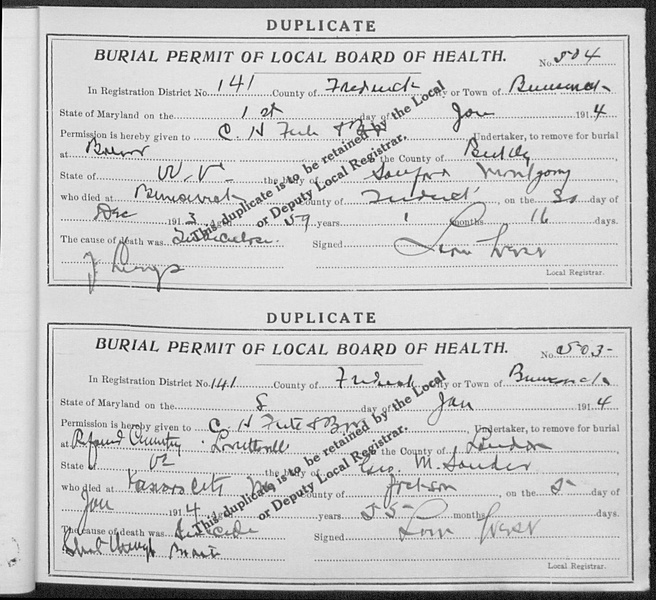 DUPLICATE
BURIAL PERMIT OF LOCAL BOARD OF HEALTH.
No. 504
In Registration District No. 141 County of Frederick City or Town of Brunswick
State of Maryland on the 1st day of Jan 1914
Permission is hereby given to C. H Feete & Bro Undertaker, to remove for burial
at in the County of
State of W. Va the body of Montgomery
who died at Brunswick County of Frederick, on the 30 day of
Dec 1913 aged 59 years 1 months 16 days.
The cause of death was Tuberculosis Signed
of Lungs
Local Registrar.
This duplicate is to be retained by the Local
or Deputy Local Registrar.
DUPLICATE
BURIAL PERMIT OF LOCAL BOARD OF HEALTH.
No. 503
In Registration District No. 141 County of Frederick City or Town of Brunswick
State of Maryland on the 8 day of Jan 1914
Permission is hereby given to C H Feete & Bro, Undertaker, to remove for burial
at Cemetery Lovettsville in the County of Loudon
State of Va the body of Geo. M. Souder
who died at Kansas City Mo County of Jackson, on the 5 day of
Jan 1914 aged years 55 months days.
The cause of death was Suicide Signed
Shot through
Local Registrar.
This duplicate is to be retained by the Local
or Deputy Local Registrar.